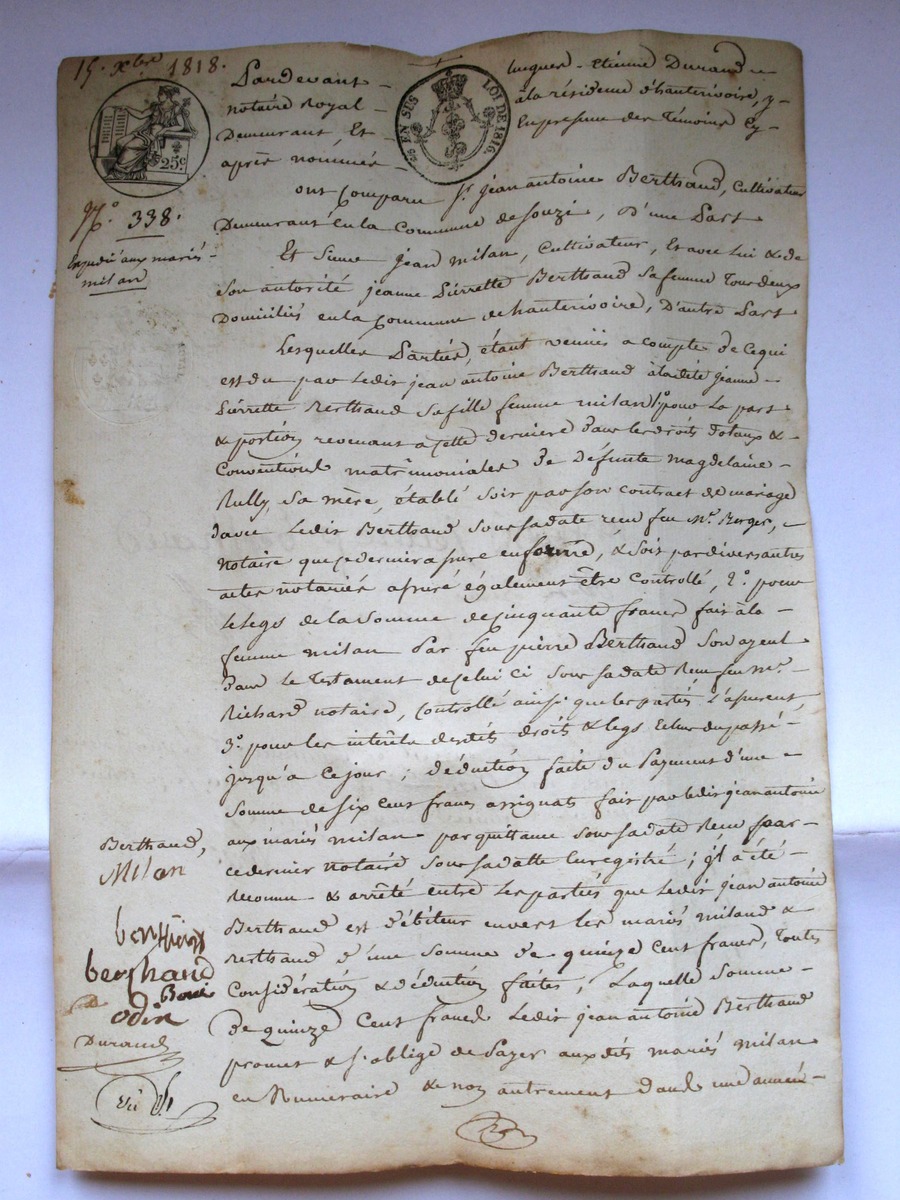 15. Xbre 1818.
Pardevant lucques - Etienne Durand
notaire Royal - à la résidence d'hauterivoire, y
EN SUS LOI DE 1816.
Demeurant Et - En presence des Témoins Cy-
25c
après nommés
ont Comparu Sr. jean antoine Berthaud, Cultivateur
No. 338.
Demeurant en la Commune de souzi, D'une Part
Expedié aux mariés
milan
Et Sieur jean milan, Cultivateur, Et avec Lui & de
Son autorité jeanne Pierrette Berthaud Sa femme Tous deux
Domiciliés en la Commune de hauterivoire, D'autre Part
Lesquelles Parties, étant venües a compte de Ce qui
est du par Ledit jean antoine Berthaud à ladite jeanne -
Pierrette Berthaud Sa fille femme milan 1o pour La part
& portion revenant a Cette derniere dans les droits dotaux &
Conventions matrimoniales De Défunte magdelaine -
Rully, Sa mère, établé Soit par son contract de mariage
avec Ledit Berthaud Sous Sa date reçu feu Mr. Berger,
Notaire que Ce dernier assure en forme, & Soit par divers autres
actes notariés assuré également être Controllé, 2o. pour
Le legs de la Somme de Cinquante francs fait à la -
femme milan Par feu pierre Berthaud Son ayeul
Dans Le Testament de Celui Ci Sous Sa date Reçu feu Mr.
Richard notaire, Controllé ainsi que les parties L'assurent
3o. pour les intérêts desdits droits & legs Echus du passé -
jusqu'a Ce jour; déduction faite du Payement d'une -
Somme de Six Cent francs assignats fait par ledit jean antoine
aux mariés milan par quittance Sous Sa date Reçu par
Ce dernier notaire Sous Sa datte Enregistré; il a été -
Berthaud,
Milan
Reconnu & arrêté entre Les parties que Ledit jean antoine
Berthaud est Débiteur envers les mariés milan &
berthaud d'une Somme De quinze Cent francs, Toutes
berthaud
Considération & déduction faites; Laquelle Somme -
odin
De quinze Cent francs Ledit jean antoine Berthaud
Durand
promet & S'oblige de Payer aux dits mariés milan
en Numéraire & non autrement dans une année -